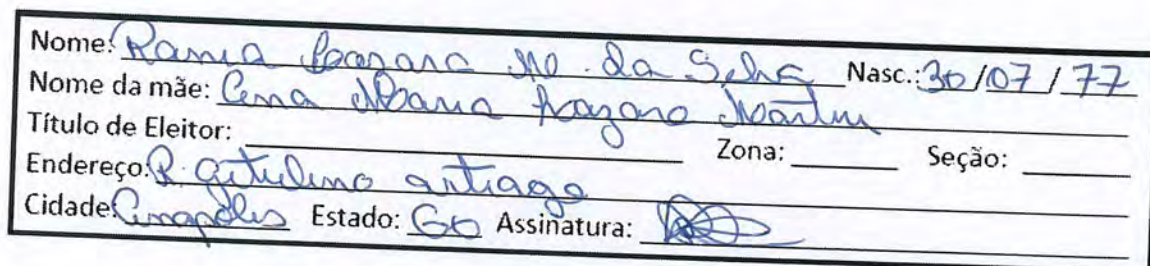 Nome: Rania Lazara M. da Silva Nasc.: 30/07/77
Nome da mãe: Ana Maria Lazara Martin
Título de Eleitor: Zona: Seção:
Endereço: R. Getulino Artiaga
Cidade: Anapolis Estado: GO Assinatura: